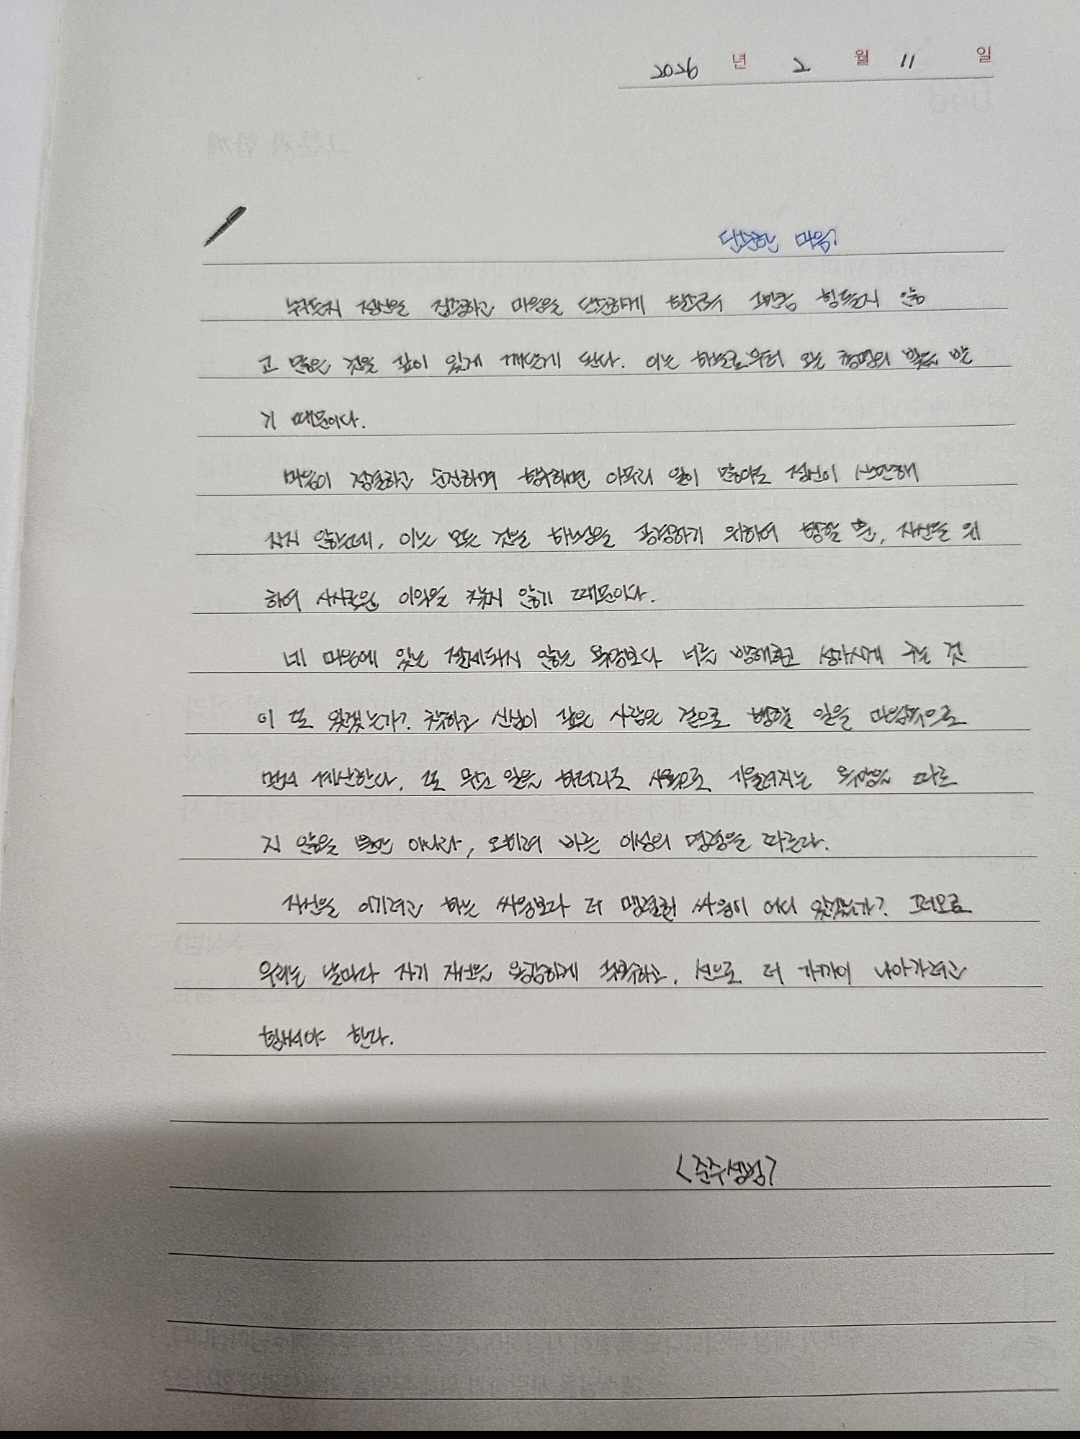 2026 년 2 월 11 일
단순한 마음
누구든지 정신을 집중하고 마음을 단순하게 할수록 그만큼 힘들지 않
고 많은 것을 깊이 있게 깨닫게 된다. 이는 하늘로부터 오는 총명의 빛을 받
기 때문이다.
마음이 정결하고 순진하며 항구하면 아무리 일이 많아도 정신이 산만해
지지 않는데, 이는 모든 것을 하느님을 공경하기 위하여 행할 뿐, 자신을 위
하여 사사로운 이익을 찾지 않기 때문이다.
네 마음에 있는 절제되지 않은 욕망보다 너를 방해하고 성가시게 구는 것
이 또 있겠는가? 착하고 신심이 깊은 사람은 겉으로 행할 일을 마음속으로
먼저 계산한다. 또 무슨 일을 하더라도 사욕으로 기울어지는 욕망을 따르
지 않을 뿐만 아니라, 오히려 바른 이성의 명령을 따른다.
자신을 이기려고 하는 싸움보다 더 맹렬한 싸움이 어디 있겠는가? 그러므로
우리는 날마다 자기 자신을 용감하게 극복하고, 선으로 더 가까이 나아가려고
힘써야 한다.
<준주성범>